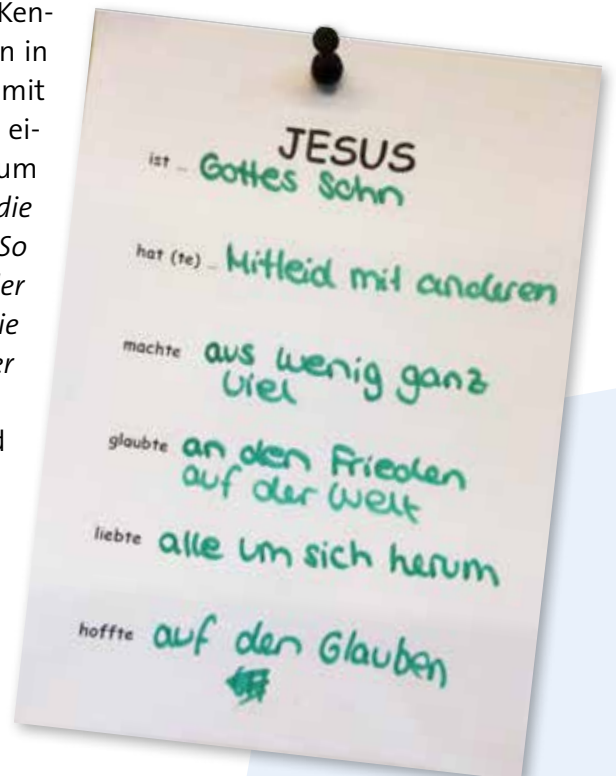 Ken-
n in
mit
ei-
um
die
So
er
ie
er
d
JESUS
ist ... Gottes Sohn
hat (te) ... Mitleid mit anderen
machte aus wenig ganz
viel
glaubte an den Frieden
auf der Welt
liebte alle um sich herum
hoffte auf den Glauben